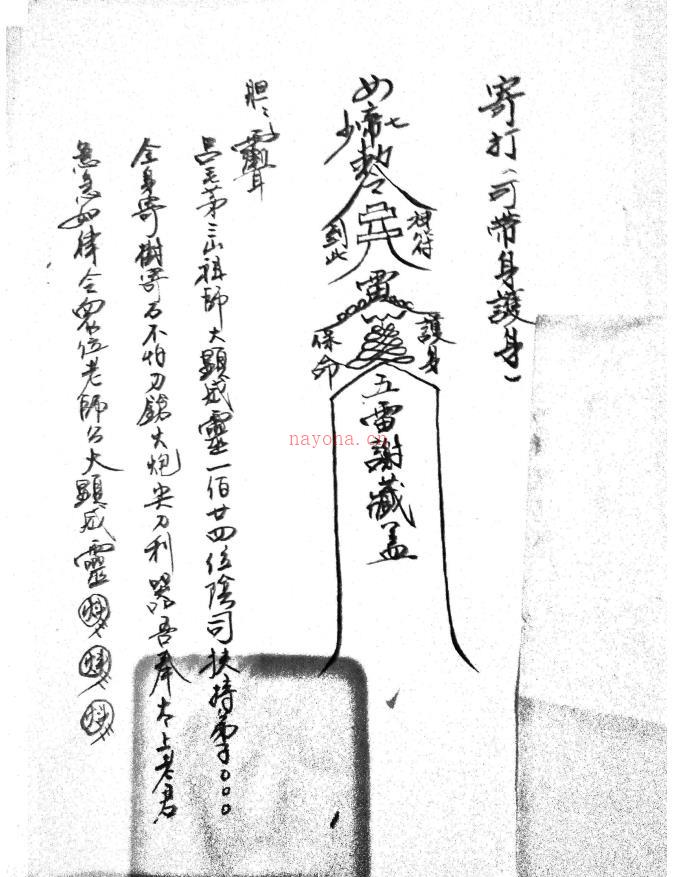 寄打(可帶身護身)
敕令
祖符
到此
雷
護身
保命
五雷謝藏盖
吕毛茅三山祖師大顯威靈一佰廿四位陰司扶持弟子○○○
全身寄樹寄石不怕刀鎗大炮尖刀利器吾奉太上老君
急急如律令眾位老師公大顯威靈
nayona.cn